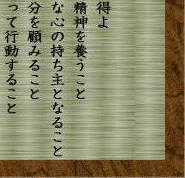 得よ
精神を養うこと
な心の持ち主となること
分を顧みること
って行動すること